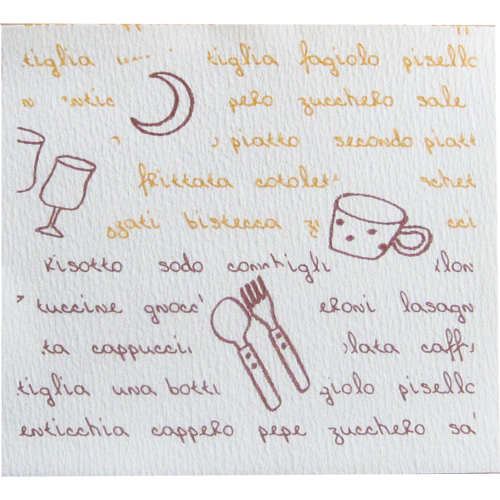 tiglia fagiolo pisello
pero zucchero sale
piatto secondo piatt
frittata cotolet schet
zzati bistecca
risotto sodo conchigli
tuccine gnocc eroni lasagn
ta cappucci lata caff
tiglia una botti giolo pisello
enticchia cappero pepe zucchero sa